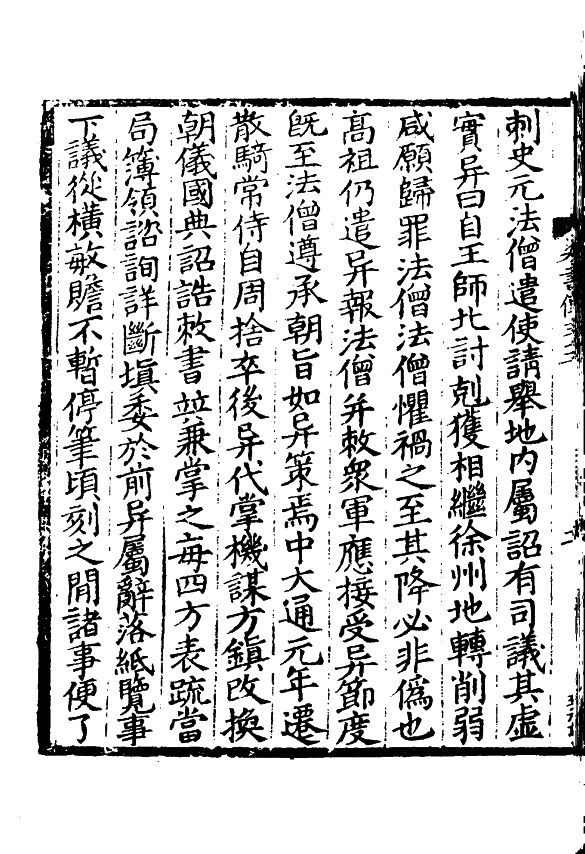 刺史元法僧遣使請舉地内屬詔有司議其虛
實异曰自王師北討剋獲相繼徐州地轉削弱
咸願歸罪法僧法僧懼禍之至其降必非僞也
髙祖仍遣异報法僧并敕衆軍應接受异節度
旣至法僧遵承朝旨如异策焉中大通元年遷
散騎常侍自周捨卒後异代掌機謀方鎮改換
朝儀國典詔誥敕書並兼掌之每四方表疏當
局簿領諮詢詳斷塡委於前异屬辭落紙覽事
下議從横敏贍不暫停筆頃刻之閒諸事便了